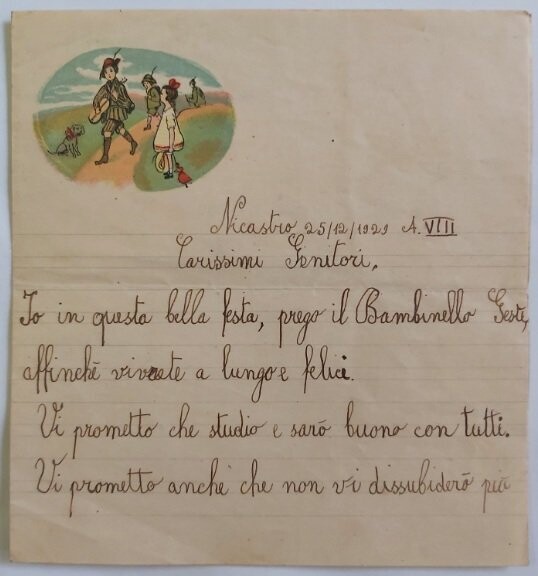 Nicastro 25/12/1929 A. VIII
Carissimi Genitori,
Io in questa bella festa, prego il Bambinello Gesù,
affinchè viveate a lungo e felici.
Vi prometto che studio e sarò buono con tutti.
Vi prometto anche che non vi dissubiderò più